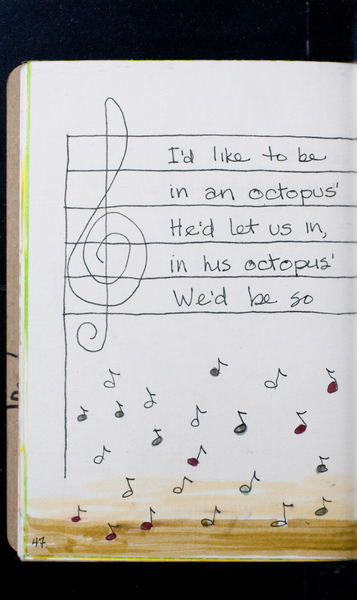 I'd like to be
in an octopus'
He'd let us in,
in his octopus'
We'd be so
47